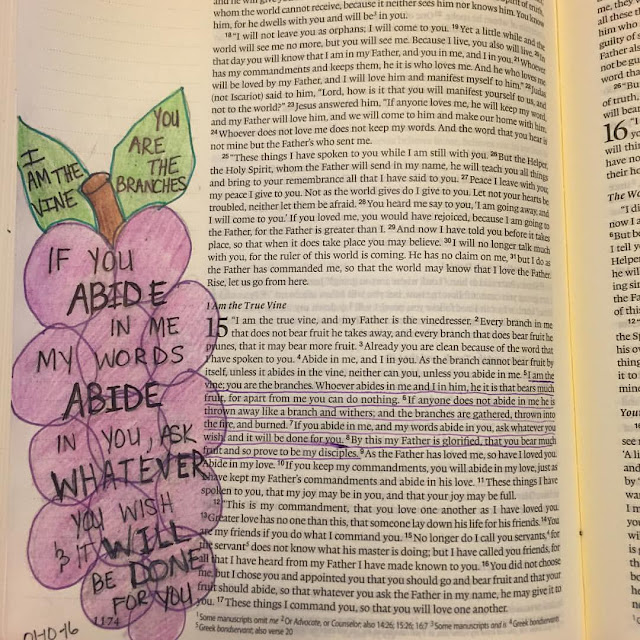 I
AM THE
VINE
YOU
ARE
THE
BRANCHES
IF YOU
ABIDE
IN ME
MY WORDS
ABIDE
IN YOU, ASK
WHATEVER
YOU WISH
& IT WILL
BE DONE
FOR YOU
1174
whom the world cannot receive, because it neither sees him nor knows him. You know
him, for he dwells with you and will be³ in you.
¹⁸ "I will not leave you as orphans; I will come to you. ¹⁹ Yet a little while and the
world will see me no more, but you will see me. Because I live, you also will live. ²⁰ In
that day you will know that I am in my Father, and you in me, and I in you. ²¹ Whoever
has my commandments and keeps them, he it is who loves me. And he who loves me
will be loved by my Father, and I will love him and manifest myself to him." ²² Judas
(not Iscariot) said to him, "Lord, how is it that you will manifest yourself to us, and
not to the world?" ²³ Jesus answered him, "If anyone loves me, he will keep my word,
and my Father will love him, and we will come to him and make our home with him.
²⁴ Whoever does not love me does not keep my words. And the word that you hear is
not mine but the Father's who sent me.
²⁵ "These things I have spoken to you while I am still with you. ²⁶ But the Helper,
the Holy Spirit, whom the Father will send in my name, he will teach you all things
and bring to your remembrance all that I have said to you. ²⁷ Peace I leave with you;
my peace I give to you. Not as the world gives do I give to you. Let not your hearts be
troubled, neither let them be afraid. ²⁸ You heard me say to you, 'I am going away, and
I will come to you.' If you loved me, you would have rejoiced, because I am going to
the Father, for the Father is greater than I. ²⁹ And now I have told you before it takes
place, so that when it does take place you may believe. ³⁰ I will no longer talk much
with you, for the ruler of this world is coming. He has no claim on me, ³¹ but I do as
the Father has commanded me, so that the world may know that I love the Father.
Rise, let us go from here.
I Am the True Vine
15 "I am the true vine, and my Father is the vinedresser. ² Every branch in me
that does not bear fruit he takes away, and every branch that does bear fruit he
prunes, that it may bear more fruit. ³ Already you are clean because of the word that
I have spoken to you. ⁴ Abide in me, and I in you. As the branch cannot bear fruit by
itself, unless it abides in the vine, neither can you, unless you abide in me. ⁵ I am the
vine; you are the branches. Whoever abides in me and I in him, he it is that bears much
fruit, for apart from me you can do nothing. ⁶ If anyone does not abide in me he is
thrown away like a branch and withers; and the branches are gathered, thrown into
the fire, and burned. ⁷ If you abide in me, and my words abide in you, ask whatever you
wish, and it will be done for you. ⁸ By this my Father is glorified, that you bear much
fruit and so prove to be my disciples. ⁹ As the Father has loved me, so have I loved you.
Abide in my love. ¹⁰ If you keep my commandments, you will abide in my love, just as
I have kept my Father's commandments and abide in his love. ¹¹ These things I have
spoken to you, that my joy may be in you, and that your joy may be full.
¹² "This is my commandment, that you love one another as I have loved you.
¹³ Greater love has no one than this, that someone lay down his life for his friends. ¹⁴ You
are my friends if you do what I command you. ¹⁵ No longer do I call you servants,⁴ for
the servant⁵ does not know what his master is doing; but I have called you friends, for
all that I have heard from my Father I have made known to you. ¹⁶ You did not choose
me, but I chose you and appointed you that you should go and bear fruit and that your
fruit should abide, so that whatever you ask the Father in my name, he may give it to
you. ¹⁷ These things I command you, so that you will love one another.
¹ Some manuscripts omit me ² Or Advocate, or Counselor; also 14:26; 15:26; 16:7 ³ Some manuscripts and is ⁴ Greek bondservants
⁵ Greek bondservant; also verse 20
all these
him who
guilty of
Father als
not be gu
word tha
²⁶ "Bu
of truth,
will bear
16 "I
yo
will thin
have no
their ho
The Wo
"I di
now I a
⁶ But be
I tell y
Helpe
he wil
ing sin
the Fa
of this
¹² "
the Sp
his ow
thing
it to
mine
Your
see
'A li